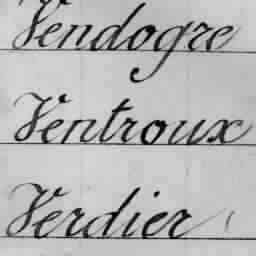 Vendogre
Ventroux
Verdier